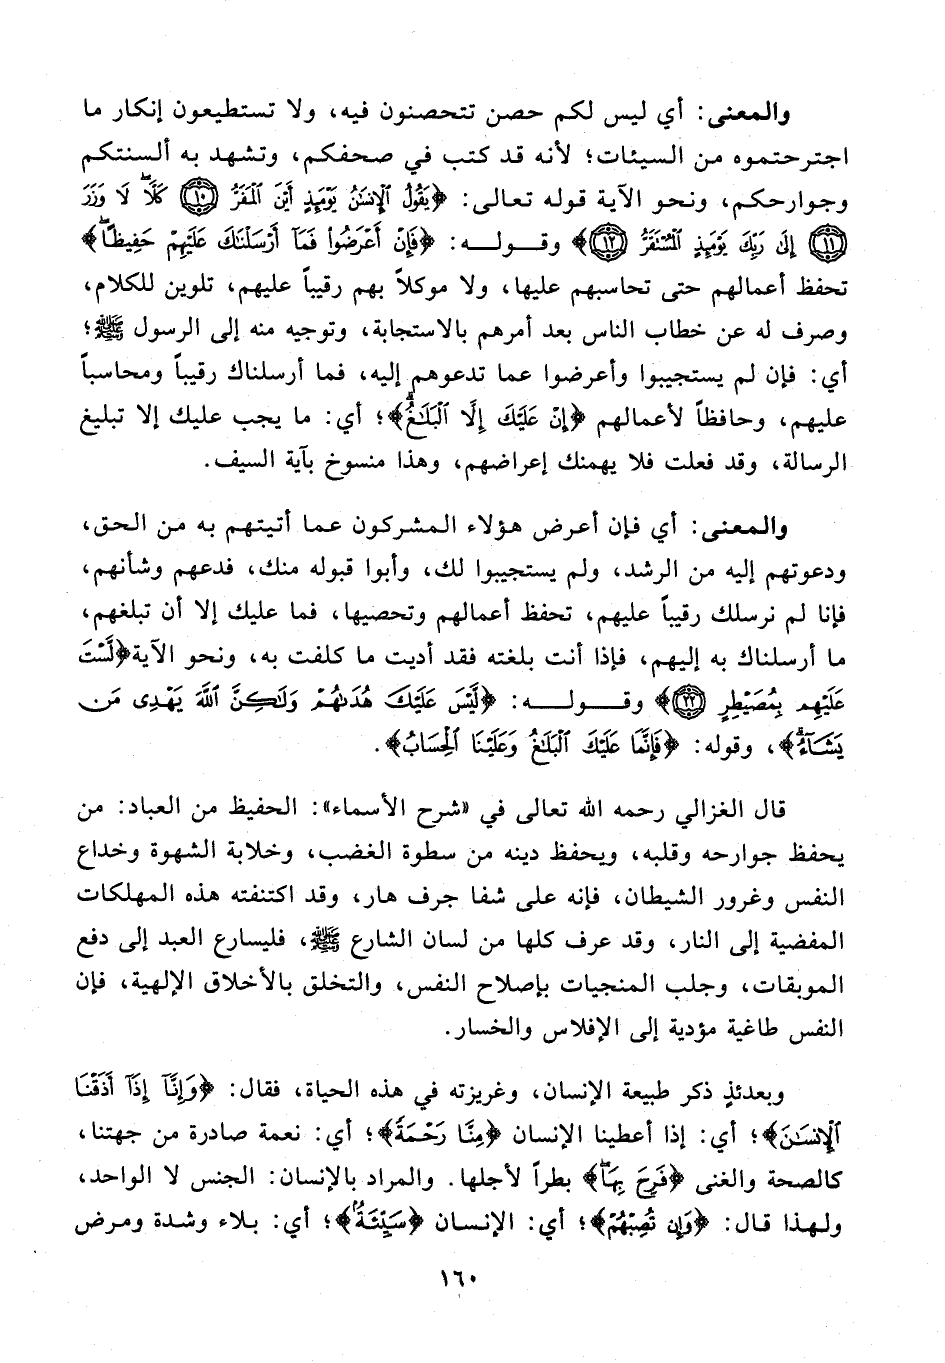 والمعنى: أي ليس لكم حصن تتحصنون فيه، ولا تستطيعون إنكار ما
اجترحتموه من السيئات؛ لأنه قد كتب في صحفكم، وتشهد به ألسنتكم
وجوارحكم، ونحو الآية قوله تعالى: ﴿يَقُولُ ٱلْإِنسَٰنُ يَوْمَئِذٍ أَيْنَ ٱلْمَفَرُّ ۝١٠ كَلَّا لَا وَزَرَ
۝١١ إِلَىٰ رَبِّكَ يَوْمَئِذٍ ٱلْمُسْتَقَرُّ ۝١٢﴾ وقـولـه: ﴿فَإِنْ أَعْرَضُوا فَمَآ أَرْسَلْنَٰكَ عَلَيْهِمْ حَفِيظًاۖ﴾
تحفظ أعمالهم حتى تحاسبهم عليها، ولا موكلاً بهم رقيباً عليهم، تلوين للكلام،
وصرف له عن خطاب الناس بعد أمرهم بالاستجابة، وتوجيه منه إلى الرسول ﷺ؛
أي: فإن لم يستجيبوا وأعرضوا عما تدعوهم إليه، فما أرسلناك رقيباً ومحاسباً
عليهم، وحافظاً لأعمالهم ﴿إِنْ عَلَيْكَ إِلَّا ٱلْبَلَٰغُۗ﴾؛ أي: ما يجب عليك إلا تبليغ
الرسالة، وقد فعلت فلا يهمنك إعراضهم، وهذا منسوخ بآية السيف.
والمعنى: أي فإن أعرض هؤلاء المشركون عما أتيتهم به من الحق،
ودعوتهم إليه من الرشد، ولم يستجيبوا لك، وأبوا قبوله منك، فدعهم وشأنهم،
فإنا لم نرسلك رقيباً عليهم، تحفظ أعمالهم وتحصيها، فما عليك إلا أن تبلغهم،
ما أرسلناك به إليهم، فإذا أنت بلغته فقد أديت ما كلفت به، ونحو الآية﴿لَّسْتَ
عَلَيْهِم بِمُصَيْطِرٍ ۝٢٢﴾ وقـولـه: ﴿لَّيْسَ عَلَيْكَ هُدَىٰهُمْ وَلَٰكِنَّ ٱللَّهَ يَهْدِى مَن
يَشَآءُۗ﴾، وقوله: ﴿فَإِنَّمَا عَلَيْكَ ٱلْبَلَٰغُ وَعَلَيْنَا ٱلْحِسَابُ﴾.
قال الغزالي رحمه الله تعالى في «شرح الأسماء»: الحفيظ من العباد: من
يحفظ جوارحه وقلبه، ويحفظ دينه من سطوة الغضب، وخلابة الشهوة وخداع
النفس وغرور الشيطان، فإنه على شفا جرف هار، وقد اكتنفته هذه المهلكات
المفضية إلى النار، وقد عرف كلها من لسان الشارع ﷺ، فليسارع العبد إلى دفع
الموبقات، وجلب المنجيات بإصلاح النفس، والتخلق بالأخلاق الإلهية، فإن
النفس طاغية مؤدية إلى الإفلاس والخسار.
وبعدئذٍ ذكر طبيعة الإنسان، وغريزته في هذه الحياة، فقال: ﴿وَإِنَّآ إِذَآ أَذَقْنَا
ٱلْإِنسَٰنَ﴾؛ أي: إذا أعطينا الإنسان ﴿مِنَّا رَحْمَةً﴾؛ أي: نعمة صادرة من جهتنا،
كالصحة والغنى ﴿فَرِحَ بِهَاۖ﴾ بطراً لأجلها. والمراد بالإنسان: الجنس لا الواحد،
ولهذا قال: ﴿وَإِن تُصِبْهُمْ﴾؛ أي: الإنسان ﴿سَيِّئَةٌۢ﴾؛ أي: بلاء وشدة ومرض
١٦٠